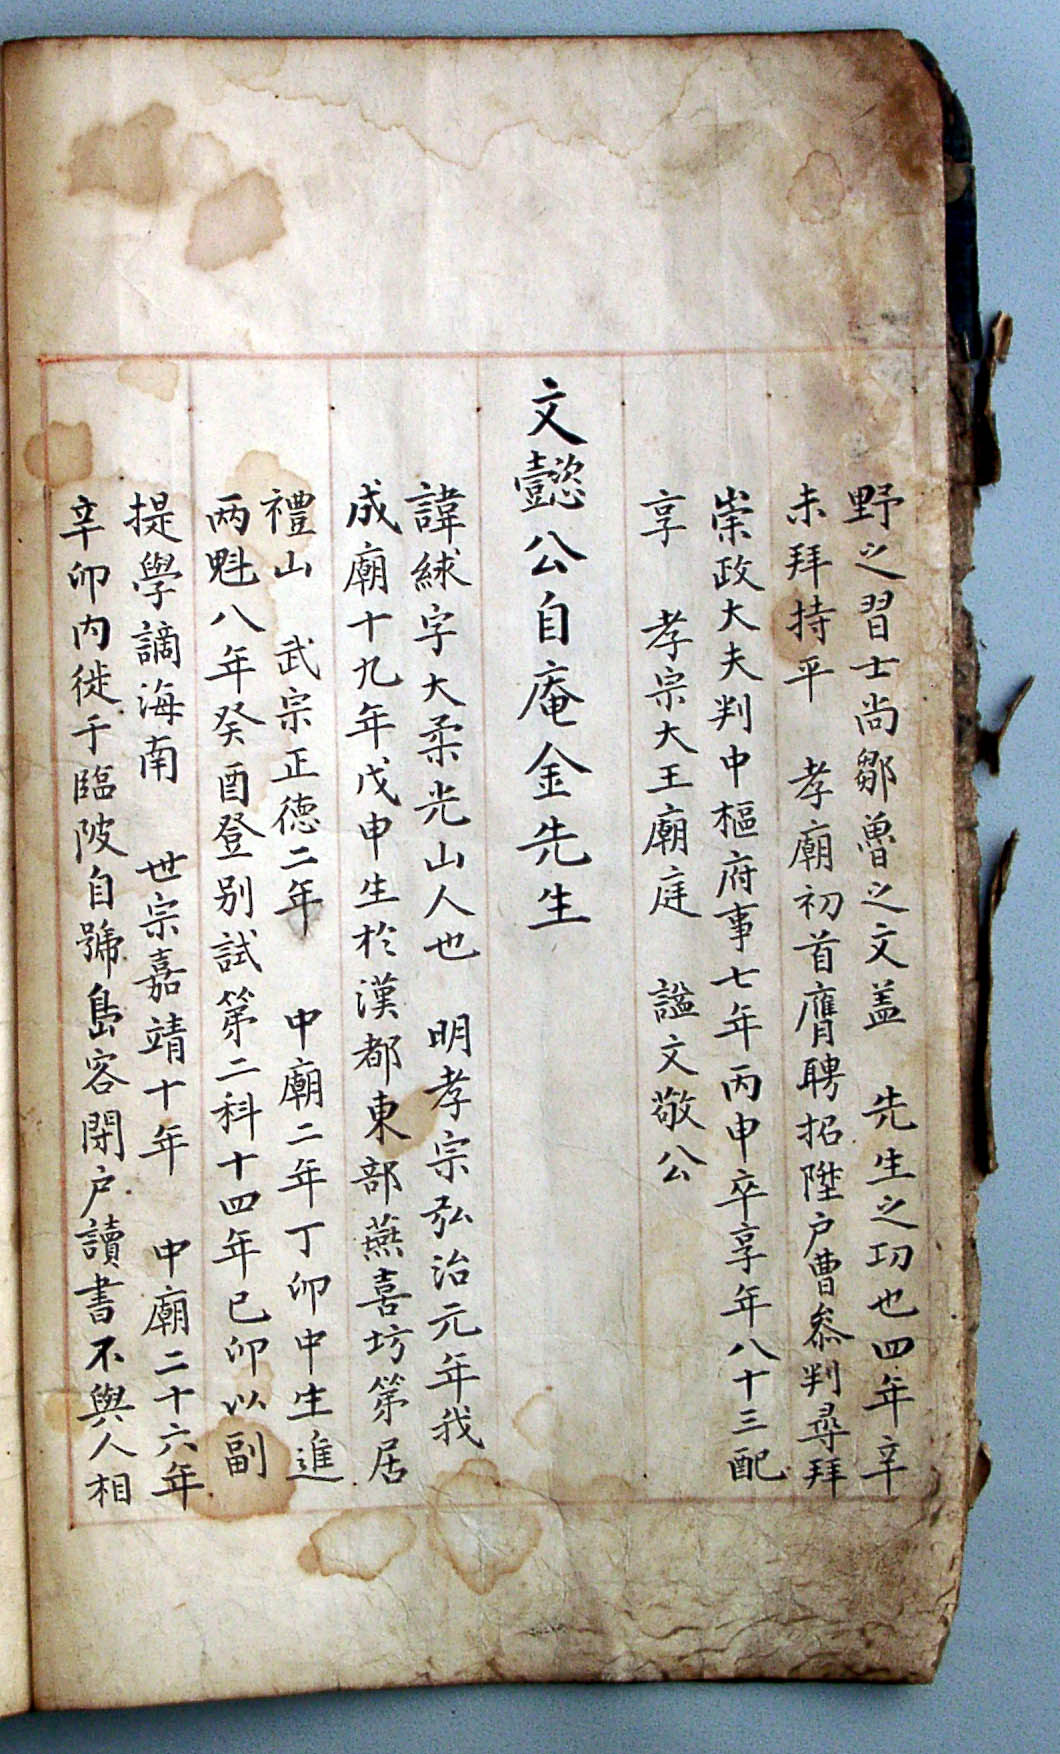 野之習士尚鄒魯之文盖 先生之功也四年辛
未拜持平 孝廟初首膺聘招陞戶曹叅判尋拜
崇政大夫判中樞府事七年丙申卒享年八十三配
享 孝宗大王廟庭 謚文敬公
文懿公自庵金先生
諱絿字大柔光山人也 明孝宗弘治元年我
成廟十九年戊申生於漢都東部燕喜坊第居
禮山 武宗正德二年 中廟二年丁卯中生進
两魁八年癸酉登别試第二科十四年已卯以副
提學謫海南 世宗嘉靖十年 中廟二十六年
辛卯內徙于臨陂自號島客閉户讀書不與人相